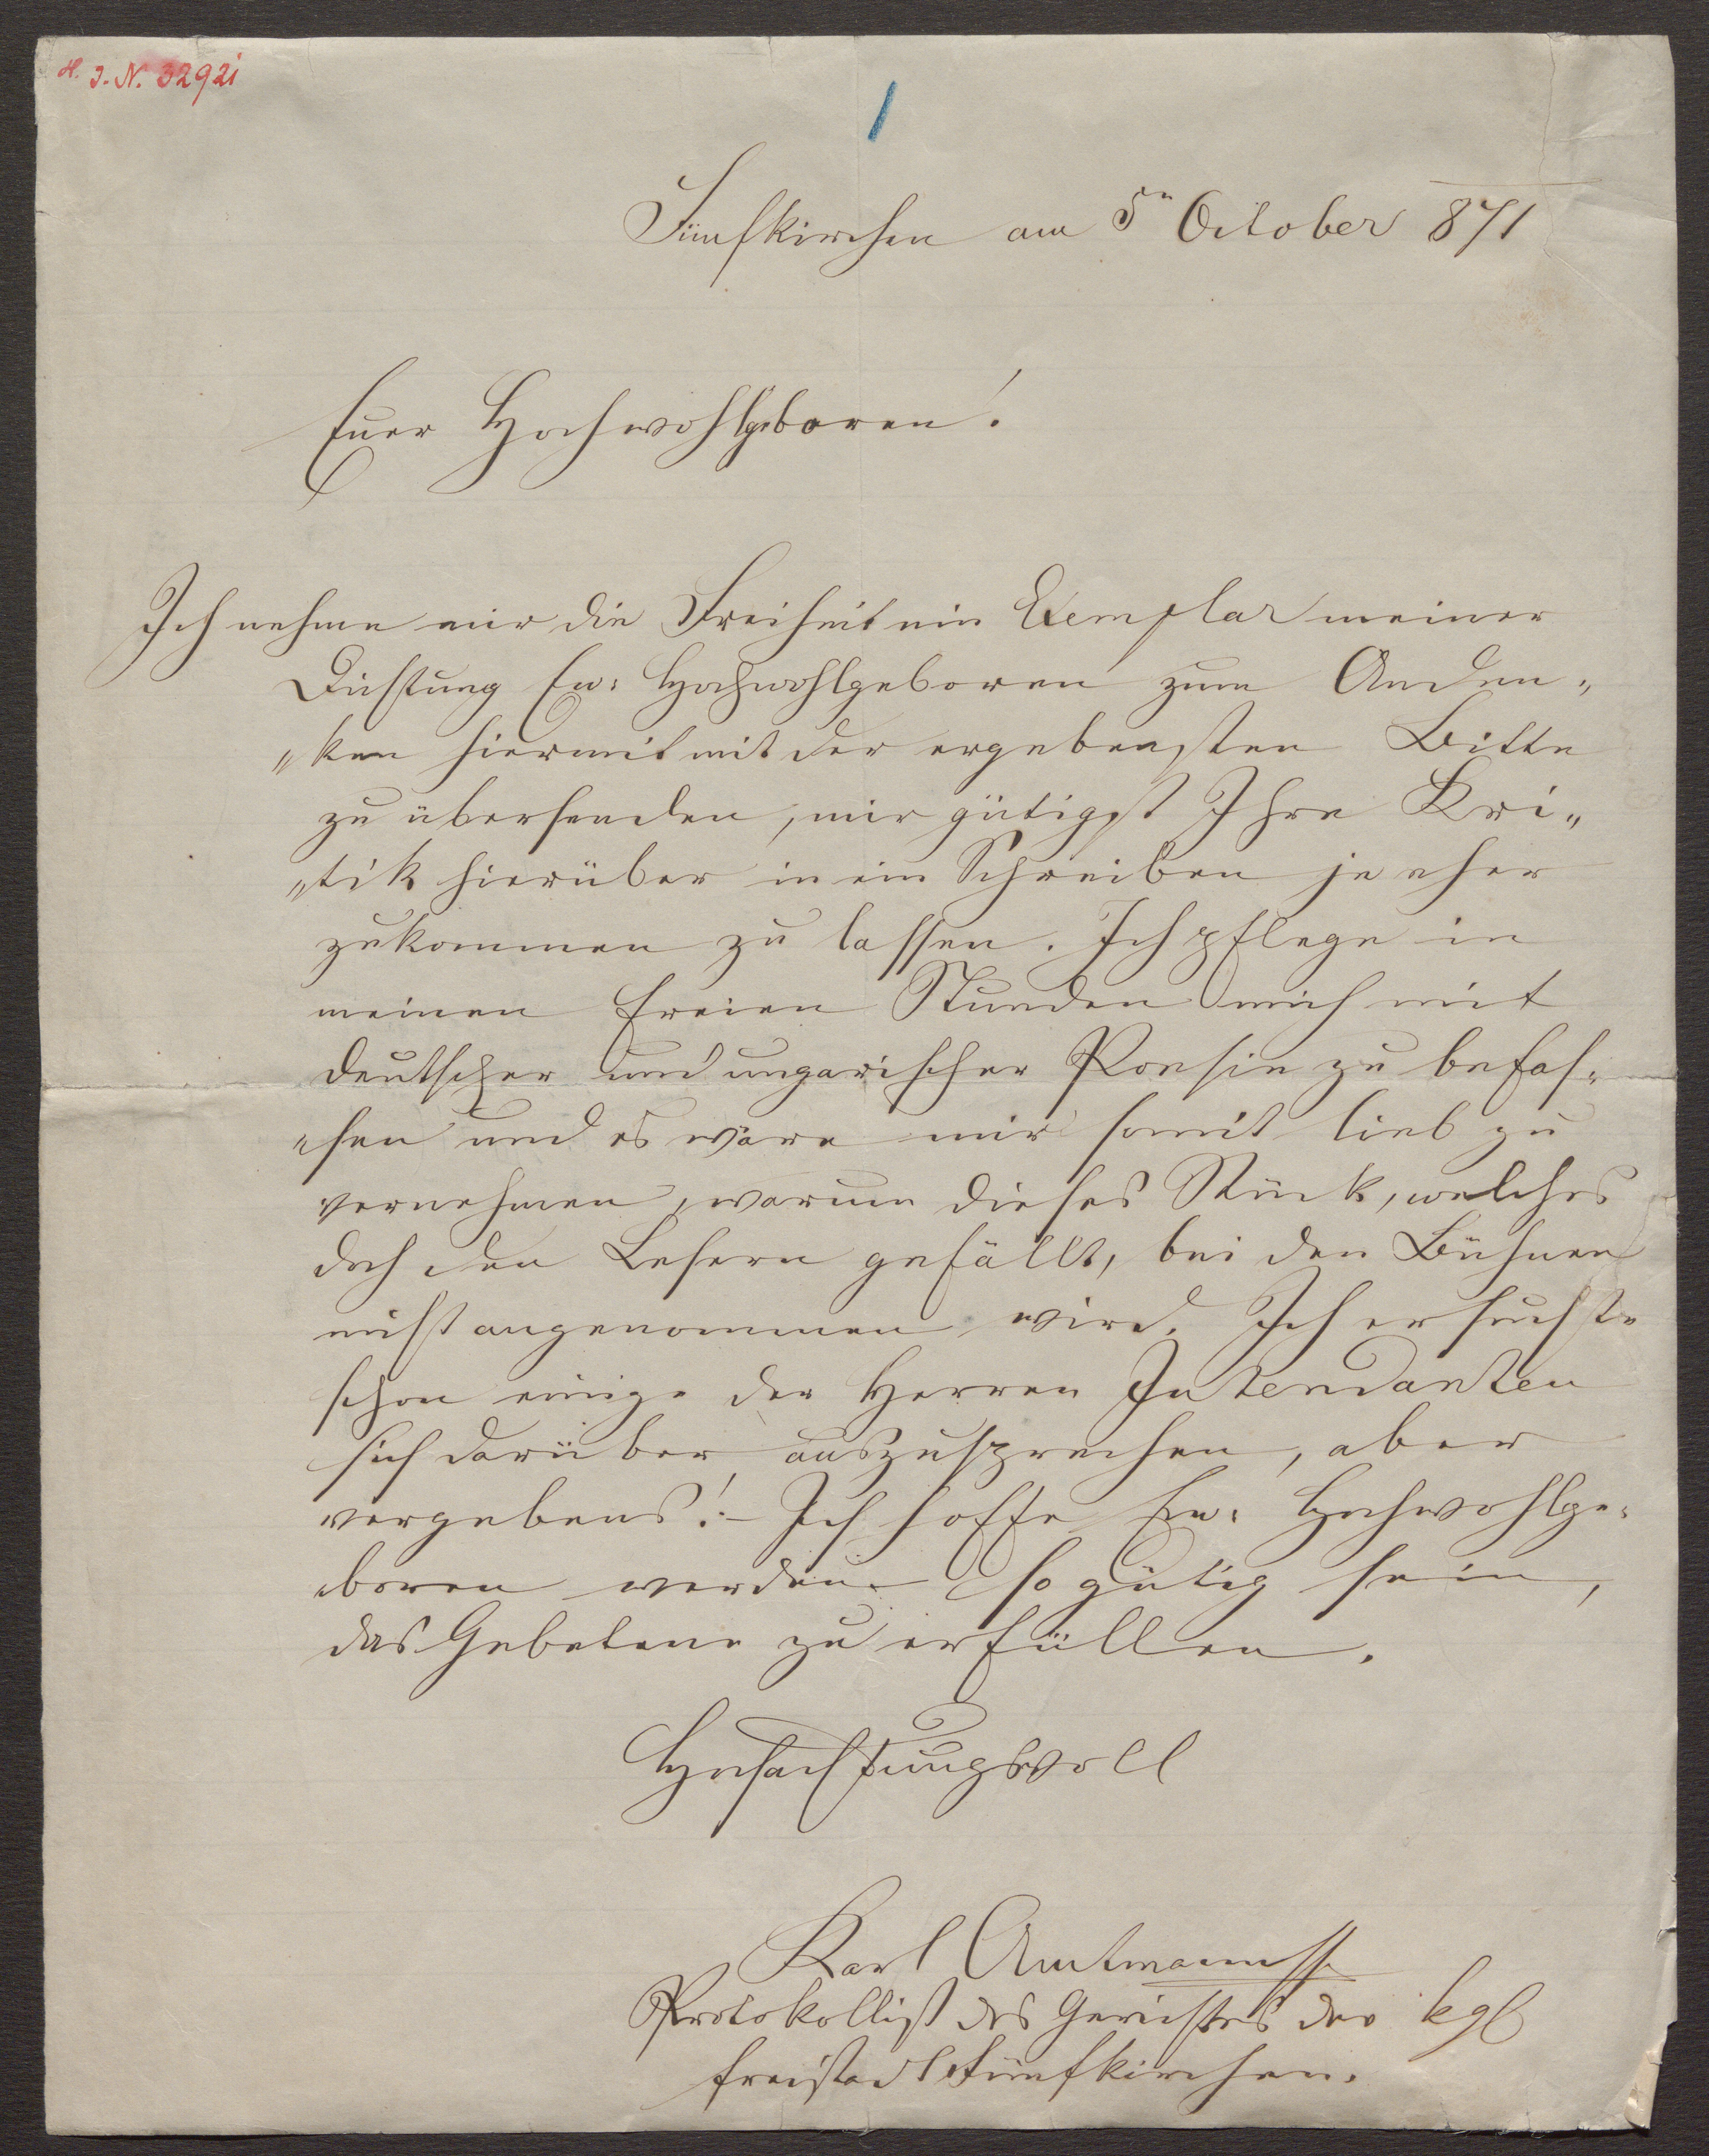 H. I. N. 32921
1
Fünfkirchen am 5n October 871
Euer Hochwohlgeboren!
Ich nehme mir die Freiheit ein Exemplar meiner
Dichtung Ew: Hochwohlgeboren zum Anden„
„ken hiermit mit der ergebensten Bitte
zu übersenden, mir gütigst Ihre Kri„
„tik hierüber in ein Schreiben je eher
zukommen zu lassen. Ich pflege in
meinen freien Stunden mich mit
deutscher und ungarischer Poesie zu befas„
„sen und es wäre mir somit lieb zu
vernehmen, warum dieses Stück, welches
doch den Lesern gefällt, bei den Bühnen
nicht angenommen wird. Ich ersuchte
schon einige der Herren Intendanten
sich darüber auszusprechen, aber
vergebens! – Ich hoffe Ew: Hochwohlge„
boren werden so gütig sein,
das Gebetene zu erfüllen.
Hochachtungsvoll
Karl Amtmann
Protokollist des Gerichtes der kgl
Freistadt Fünfkirchen.